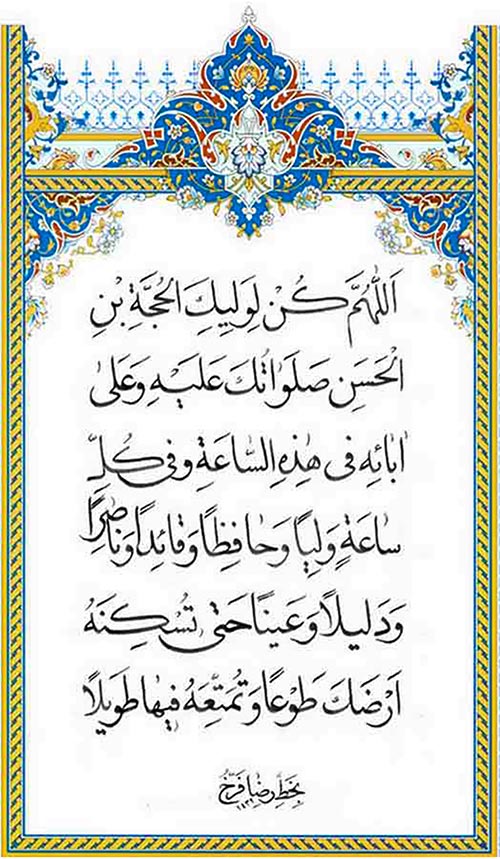 اَللّٰهُمَّ كُنْ لِوَلِيِكَ الْحُجَّةِ بْنِ
الْحَسَنِ صَلَوٰاتُكَ عَلَيْهِ وَعَلىٰ
اٰبٰائِهِ فى هٰذِهِ السّٰاعَةِ وَفى كُلِّ
سٰاعَةٍ وَلِيًا وَحٰافِظًا وَقٰائِدًا وَنٰاصِرًا
وَدَليلًا وَعَيْنًا حَتىٰ تُسْكِنَهُ
اَرْضَكَ طَوْعًا وَتُمَتِّعَهُ فيهٰا طَويلًا
بخطِّ رضا فرّخ